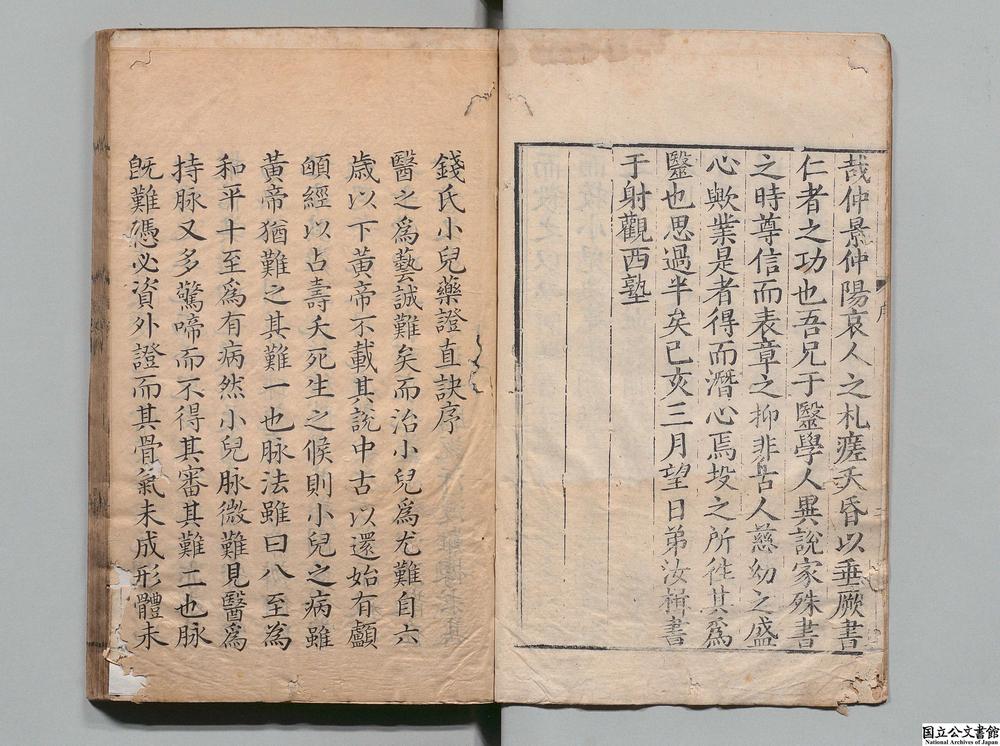 哉仲景仲陽哀人之札瘥夭昏以垂厥書
仁者之功也吾兄于醫學人異說家殊書
之時尊信而表章之抑非古人慈幼之盛
心歟業是者得而潛心焉投之所徃其爲
醫也思過半矣已亥三月望日弟汝楫書
于射觀西塾
序
錢氏小兒藥證直訣序
醫之爲藝誠難矣而治小兒爲尤難自六
歲以下黃帝不載其說中古以還始有顱
䪿經以占壽夭死生之候則小兒之病雖
黃帝猶難之其難一也脉法雖曰八至爲
和平十至爲有病然小兒脉微難見醫爲
持脉又多驚啼而不得其審其難二也脉
旣難憑必資外證而其骨氣未成形體未
国立公文書館
National Archives of Japan